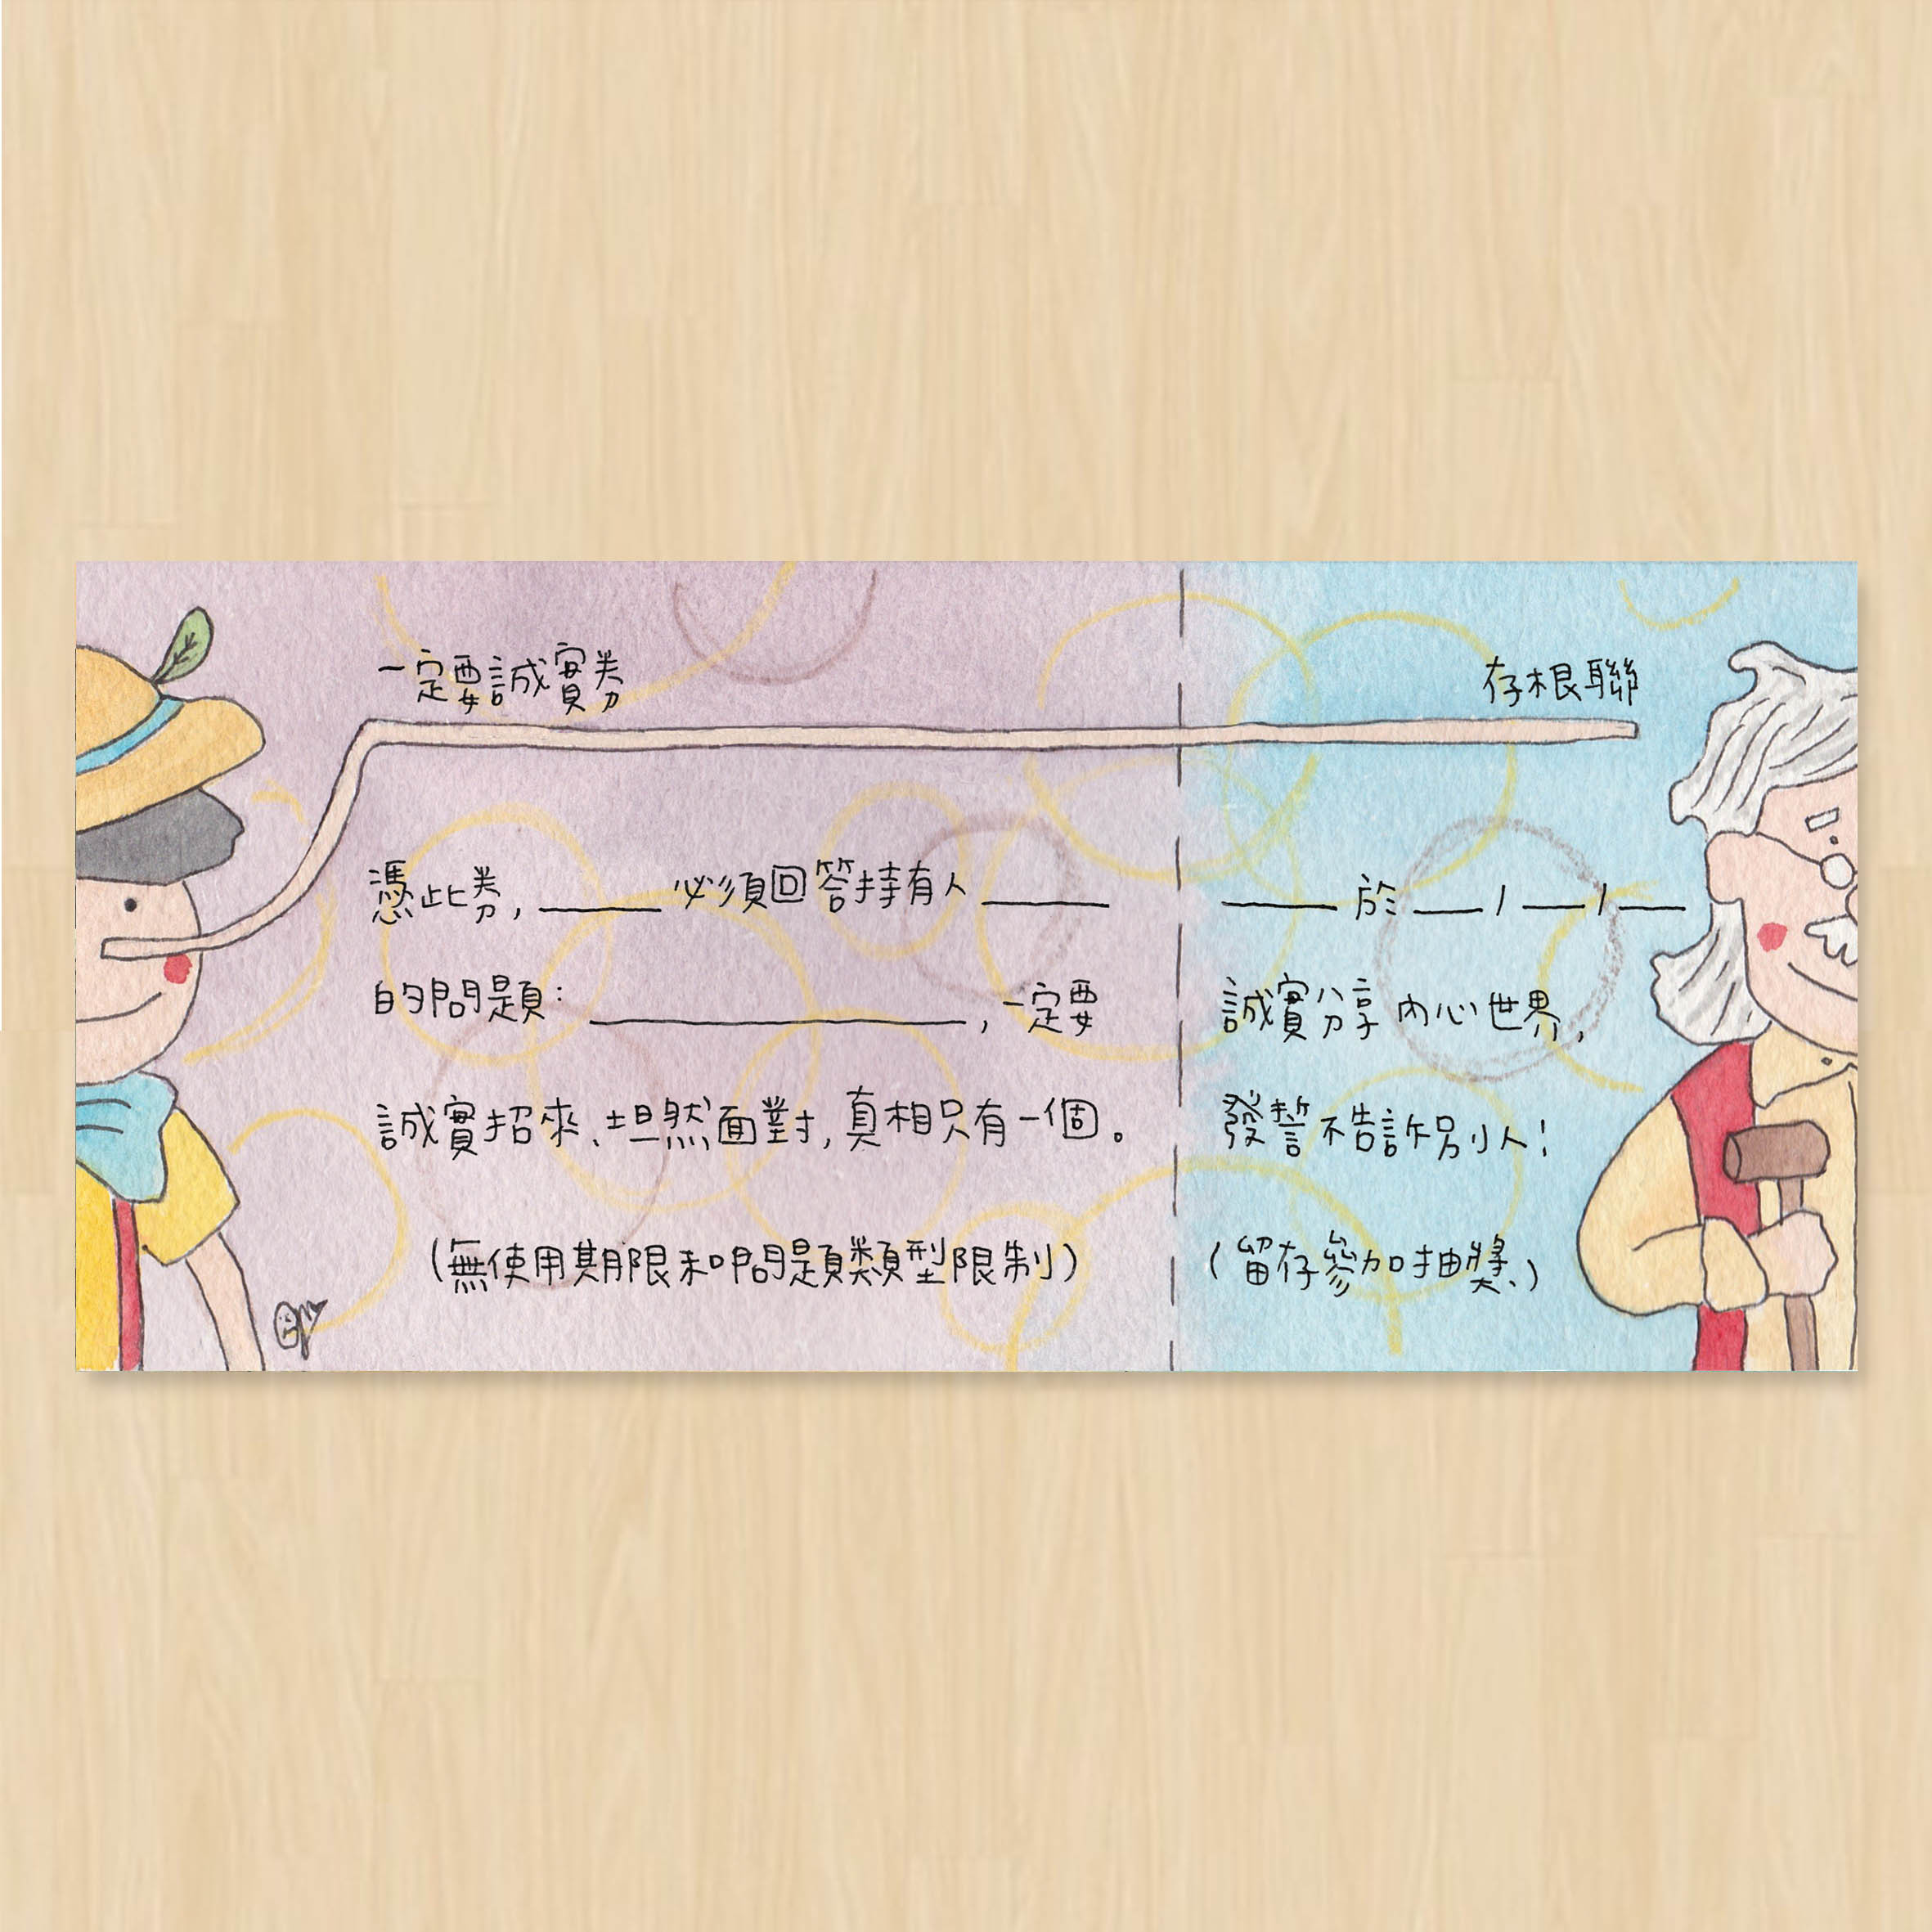 一定要誠實券
憑此券, ______ 必須回答持有人 ______
的問題: __________________, 一定要
誠實招來、坦然面對, 真相只有一個。
(無使用期限和問題類型限制)
存根聯
______ 於 ___ / ___ / ___
誠實分享內心世界,
發誓不告訴別人!
(留存參加抽獎、)